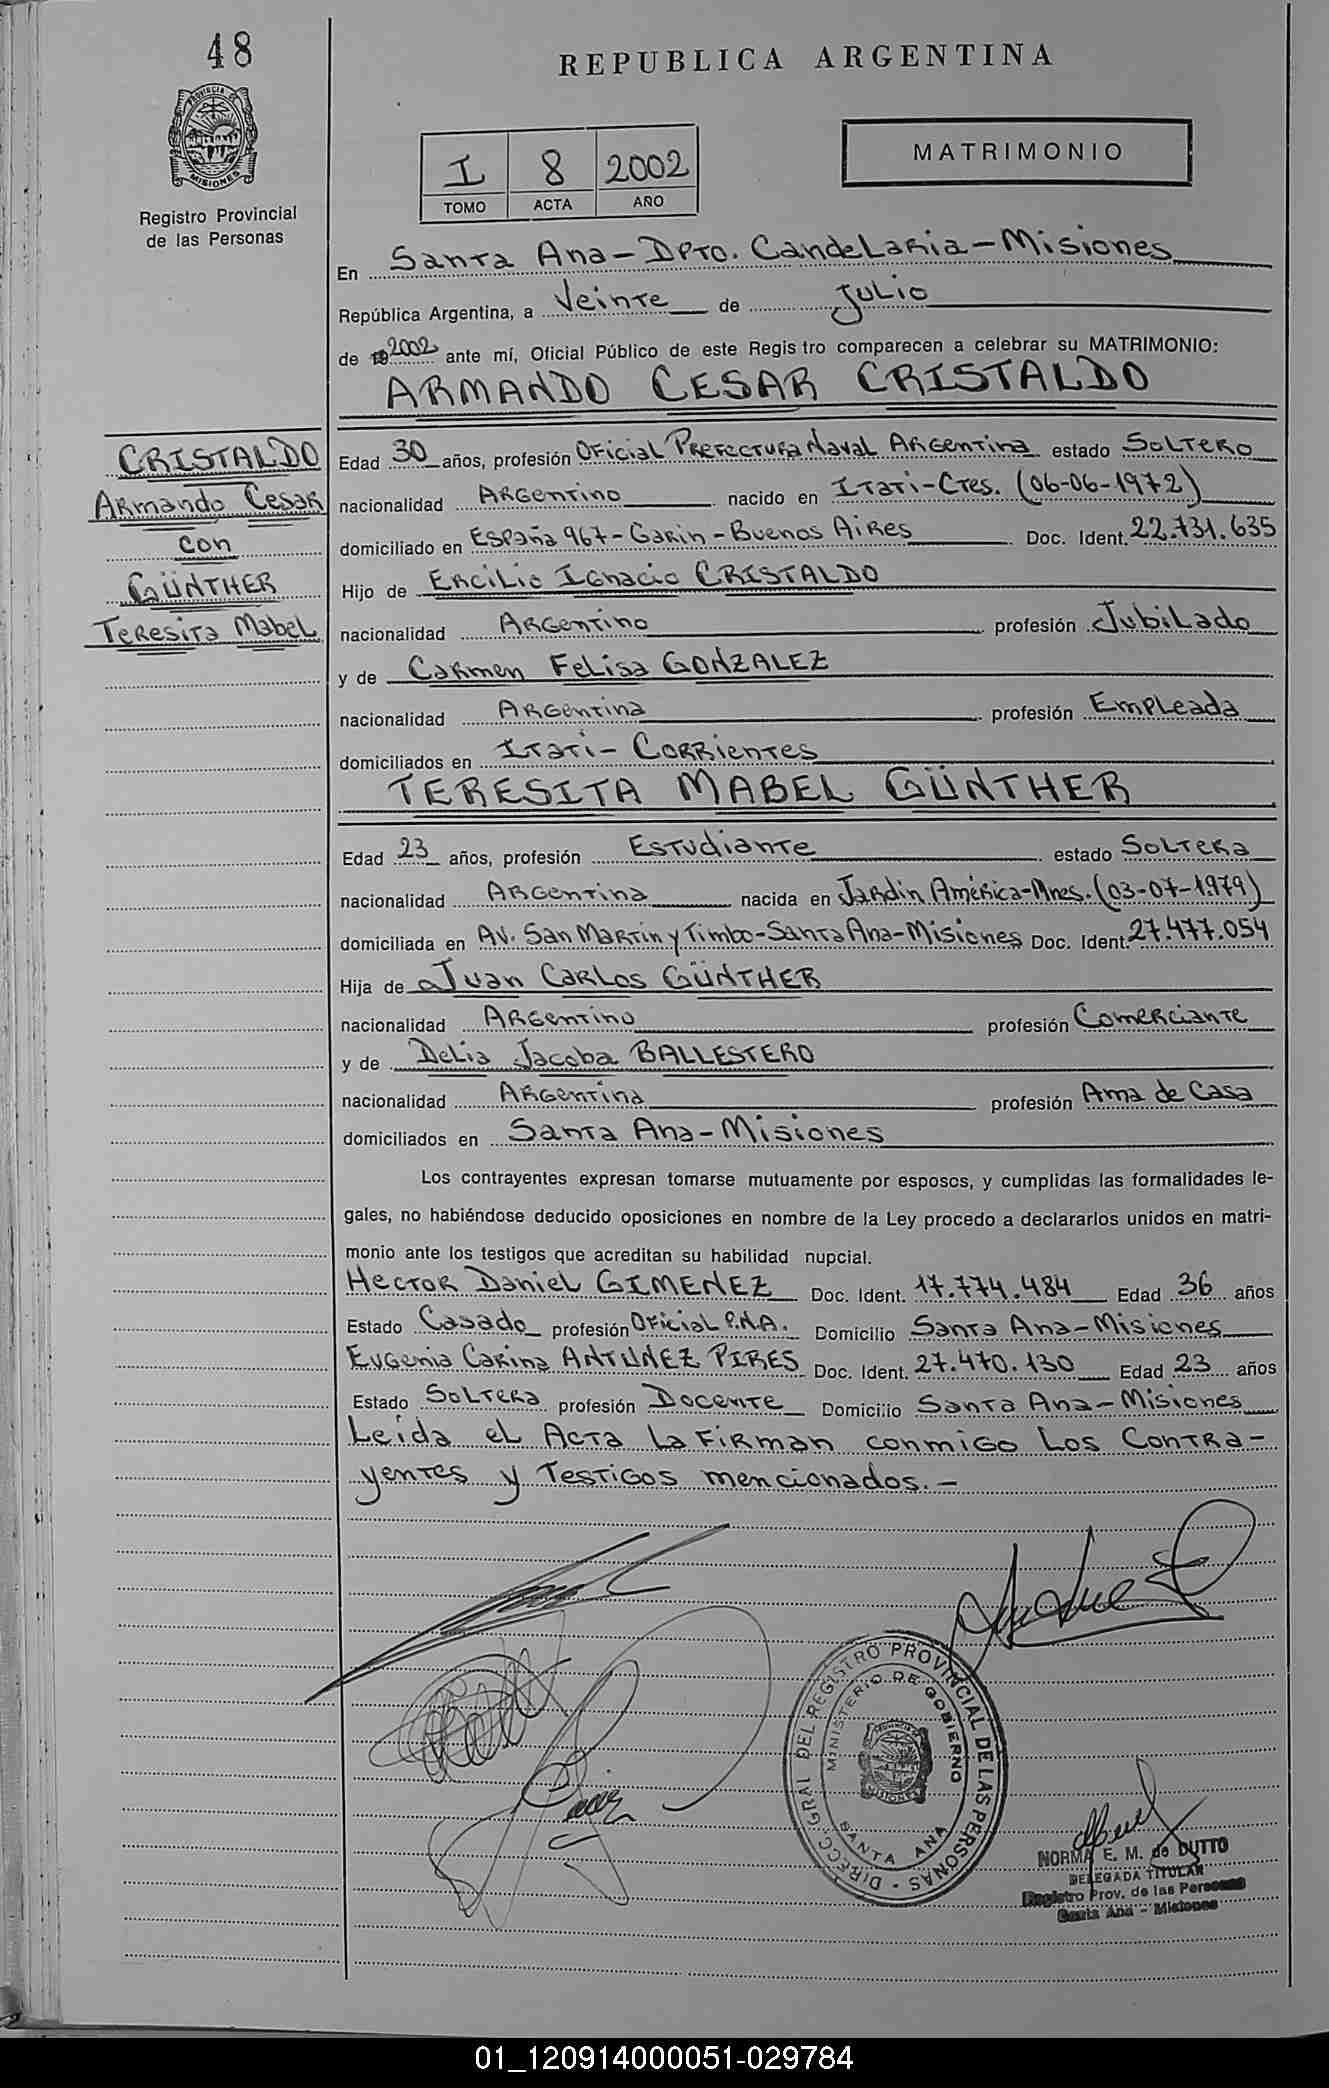 48
REPUBLICA ARGENTINA
PROVINCIA DE
MISIONES
Registro Provincial
de las Personas
I 8 2002
TOMO ACTA AÑO
MATRIMONIO
En Santa Ana - Dpto. Candelaria - Misiones
República Argentina, a Veinte de Julio
de 2002 ante mí, Oficial Público de este Regis tro comparecen a celebrar su MATRIMONIO:
ARMANDO CESAR CRISTALDO
CRISTALDO
Armando Cesar
con
GÜNTHER
Teresita Mabel
Edad 30 años, profesión Oficial Prefectura Naval Argentina estado Soltero
nacionalidad Argentino nacido en Itati-Ctes. (06-06-1972)
domiciliado en España 967 - Garin - Buenos Aires Doc. Ident. 22.731.635
Hijo de Ercilio Ignacio CRISTALDO
nacionalidad Argentino profesión Jubilado
y de Carmen Felisa GONZALEZ
nacionalidad Argentina profesión Empleada
domiciliados en Itati - Corrientes
TERESITA MABEL GÜNTHER
Edad 23 años, profesión Estudiante estado Soltera
nacionalidad Argentina nacida en Jardin América-Mnes. (03-07-1979)
domiciliada en Av. San Martin y Timbo-Santa Ana-Misiones Doc. Ident. 27.477.054
Hija de Juan Carlos GÜNTHER
nacionalidad Argentino profesión Comerciante
y de Delia Jacoba BALLESTERO
nacionalidad Argentina profesión Ama de Casa
domiciliados en Santa Ana - Misiones
Los contrayentes expresan tomarse mutuamente por esposos, y cumplidas las formalidades le-
gales, no habiéndose deducido oposiciones en nombre de la Ley procedo a declararlos unidos en matri-
monio ante los testigos que acreditan su habilidad nupcial.
Hector Daniel GIMENEZ Doc. Ident. 17.774.484 Edad 36 años
Estado Casado profesión Oficial P.N.A. Domicilio Santa Ana - Misiones
Eugenia Carina ANTUNEZ PIRES Doc. Ident. 27.470.130 Edad 23 años
Estado Soltera profesión Docente Domicilio Santa Ana - Misiones
Leída el Acta la firman conmigo los contra-
yentes y testigos mencionados. -
DIRECC. GRAL DEL REGISTRO PROVINCIAL DE LAS PERSONAS
MINISTERIO DE GOBIERNO
MISIONES
SANTA ANA
NORMA E. M. de DUTTO
DELEGADA TITULAR
Registro Prov. de las Personas
Santa Ana - Misiones
01_120914000051-029784